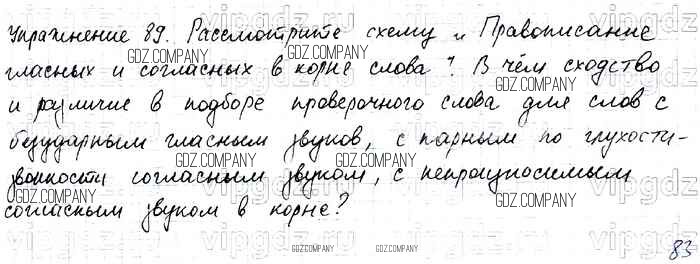 Упражнение 89. Рассмотрите схему „ Правописание
гласных и согласных в корне слова". В чём сходство
и различие в подборе проверочного слова для слов с
безударным гласным звуков, с парным по глухости-
звонкости согласным звуком, с непроизносимым
согласным звуком в корне?
83